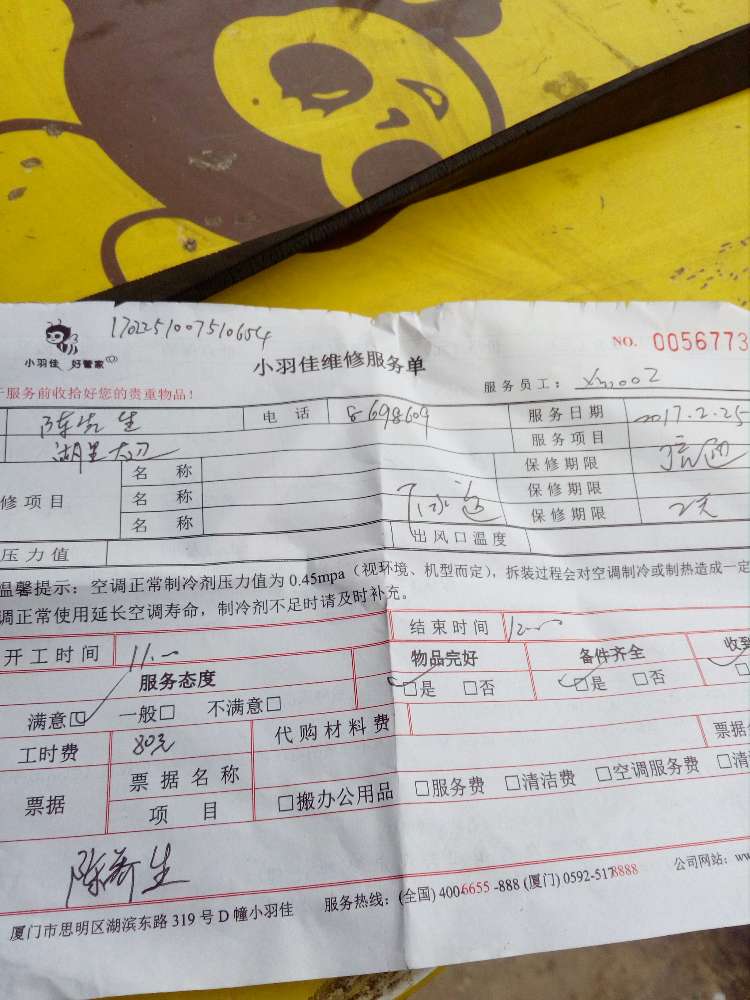 1702251007510654
小羽佳 好管家
小羽佳维修服务单
NO. 0056773
于服务前收拾好您的贵重物品！
服务员工：Xm002
陈先生 电 话 8698609 服务日期 2017.2.25
湖里大刀 服务项目
名 称 保修期限
修项目 名 称 保修期限
名 称 保修期限 2天
压力值 出风口温度
温馨提示：空调正常制冷剂压力值为 0.45mpa（视环境、机型而定），拆装过程会对空调制冷或制热造成一定
调正常使用延长空调寿命，制冷剂不足时请及时补充。
开工时间 11:00 结束时间 12:00
服务态度 物品完好 备件齐全 收到
满意□ 一般□ 不满意□ □是 □否 □是 □否
工时费 80元 代购材料费
票据 票据名称 □搬办公用品 □服务费 □清洁费 □空调服务费 □清
项 目
厦门市思明区湖滨东路 319 号 D 幢小羽佳 服务热线：(全国) 4006655-888 (厦门) 0592-5178888 公司网站：ww